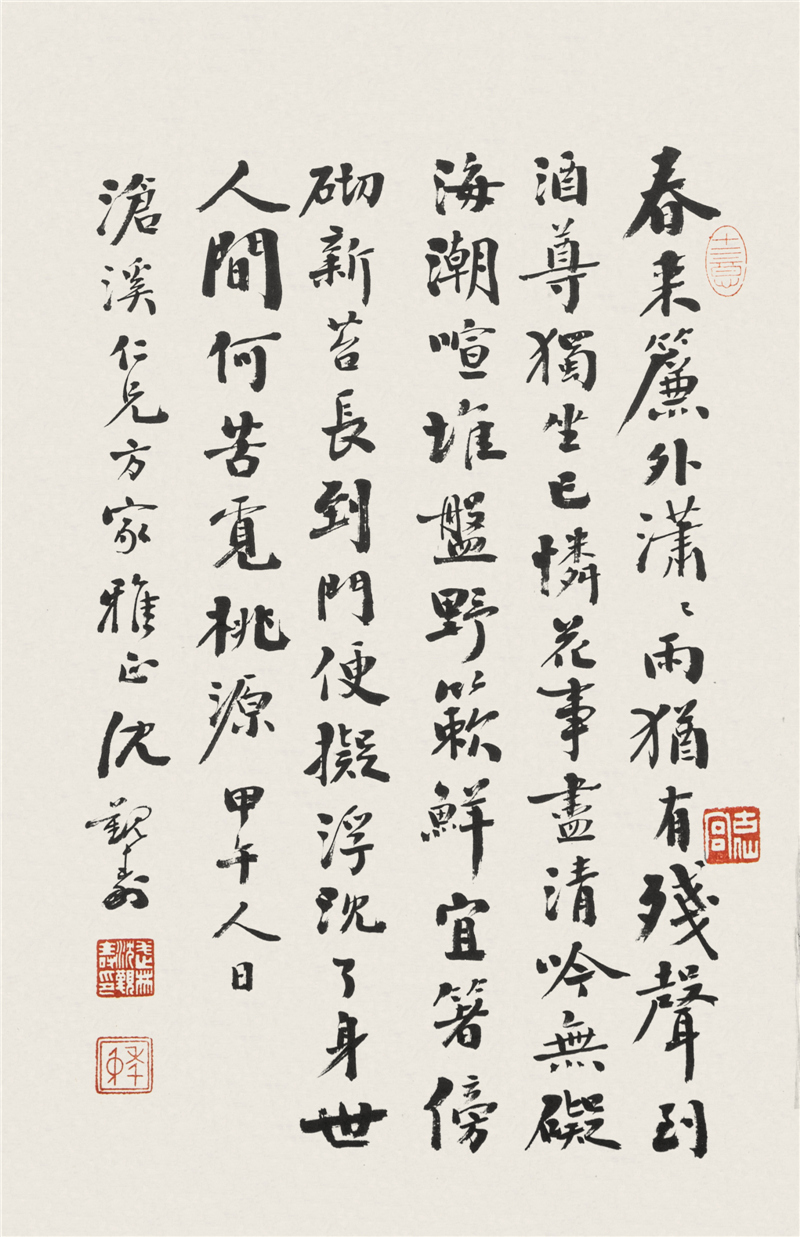 春来簾外瀟〻雨猶有殘聲到
酒尊獨坐已憐花事盡清吟無礙
海潮喧堆盤野簌鮮宜箸傍
砌新苔長到門便擬浮沈了身世
人間何苦覓桃源 甲午人日
滄溪仁兄方家雅正沈觀壽
武林沈觀壽印